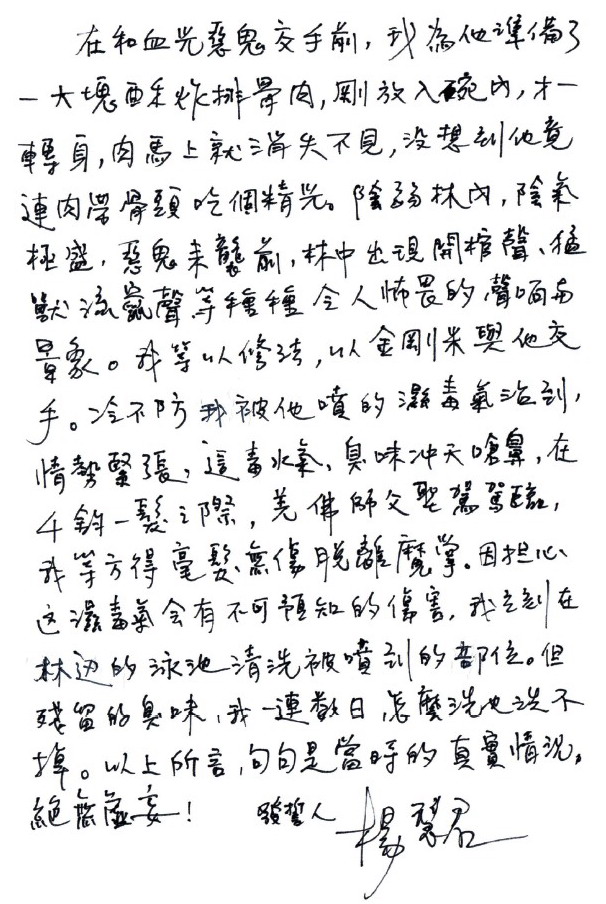 在和血光惡鬼交手前，我為他準備了
一大塊酥炸排骨肉，剛放入碗內，才一
轉身，肉馬上就消失不見，沒想到他竟
連肉帶骨頭吃個精光。陰弱林內，陰氣
極盛，惡鬼來襲前，林中出現開棺聲、猛
獸流竄聲等種種令人怖畏的聲响与
景象。我等以修法，以金剛米與他交
手。冷不防我被他噴的濕毒氣沾到，
情勢緊張，這毒水氣，臭味冲天嗆鼻，在
千鈞一髮之際，羌佛師父聖駕駕臨，
我等方得毫髮無傷脫離魔掌。因担心
这濕毒氣会有不可預知的傷害，我立刻在
林边的泳池清洗被噴到的部位。但
殘留的臭味，我一連數日，怎麼洗也洗不
掉。以上所言，句句是當時的真實情況，
絕無虛妄！ 發誓人 楊慧君